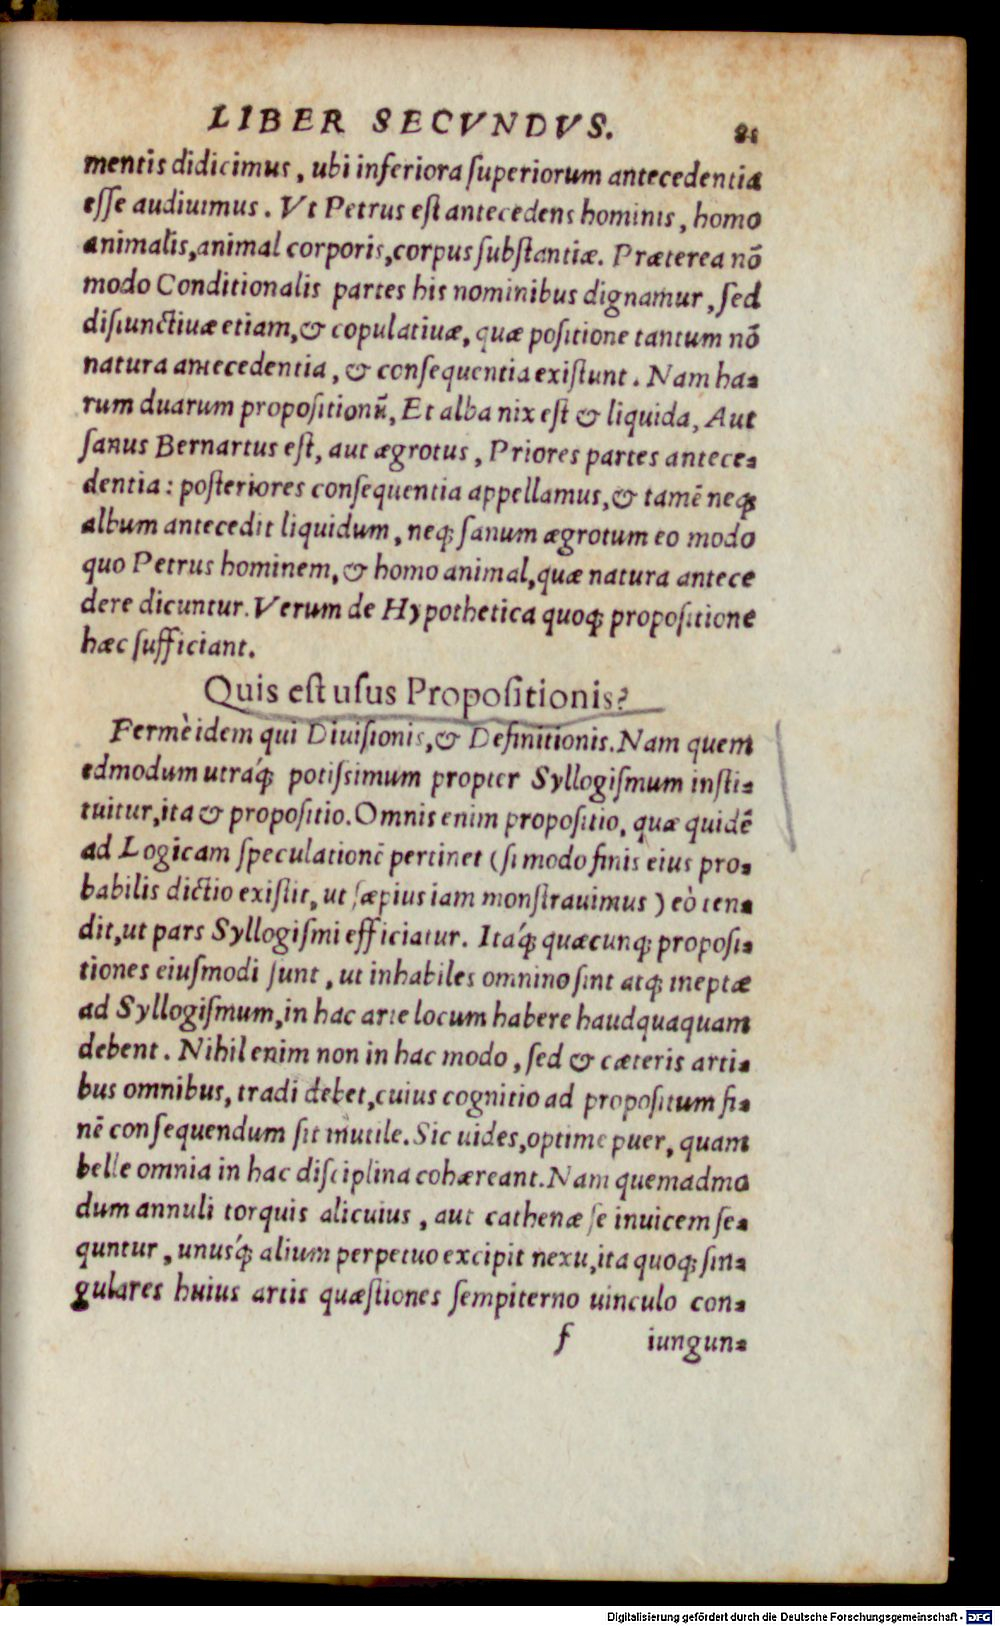 LIBER SECVNDVS. 81
mentis didicimus, ubi inferiora ſuperiorum antecedentia
eſſe audiuimus. Vt Petrus eſt antecedens hominis, homo
animalis, animal corporis, corpus ſubſtantiæ. Præterea nõ
modo Conditionalis partes his nominibus dignamur, ſed
diſiunctiuæ etiam, & copulatiuæ, quæ poſitione tantum nõ
natura antecedentia, & conſequentia exiſtunt. Nam ha-
rum duarum propoſitionũ, Et alba nix eſt & liquida, Aut
ſanus Bernartus eſt, aut ægrotus, Priores partes antece-
dentia: poſteriores conſequentia appellamus, & tamẽ neq;
album antecedit liquidum, neq; ſanum ægrotum eo modo
quo Petrus hominem, & homo animal, quæ natura antece
dere dicuntur. Verum de Hypothetica quoq; propoſitione
hæc ſufficiant.
Quis eſt uſus Propoſitionis?
Fermè idem qui Diuiſionis, & Definitionis. Nam quem
admodum utráq; potiſsimum propter Syllogiſmum inſti-
tuitur, ita & propoſitio. Omnis enim propoſitio, quæ quidẽ
ad Logicam ſpeculationẽ pertinet (ſi modo finis eius pro-
babilis dictio exiſtit, ut ſæpius iam monſtrauimus) eò ten-
dit, ut pars Syllogiſmi efficiatur. Itáq; quæcunq; propoſi-
tiones eiuſmodi ſunt, ut inhabiles omnino ſint atq; ineptæ
ad Syllogiſmum, in hac arte locum habere haudquaquam
debent. Nihil enim non in hac modo, ſed & cæteris arti-
bus omnibus, tradi debet, cuius cognitio ad propoſitum fi-
nẽ conſequendum ſit inutile. Sic uides, optime puer, quam
belle omnia in hac diſciplina cohæreant. Nam quemadmo
dum annuli torquis alicuius, aut cathenæ ſe inuicem ſe-
quntur, unusq́; alium perpetuo excipit nexu, ita quoq; ſin-
gulares huius artis quæſtiones ſempiterno uinculo con-
f iungun-
Digitalisierung gefördert durch die Deutsche Forschungsgemeinschaft - DFG